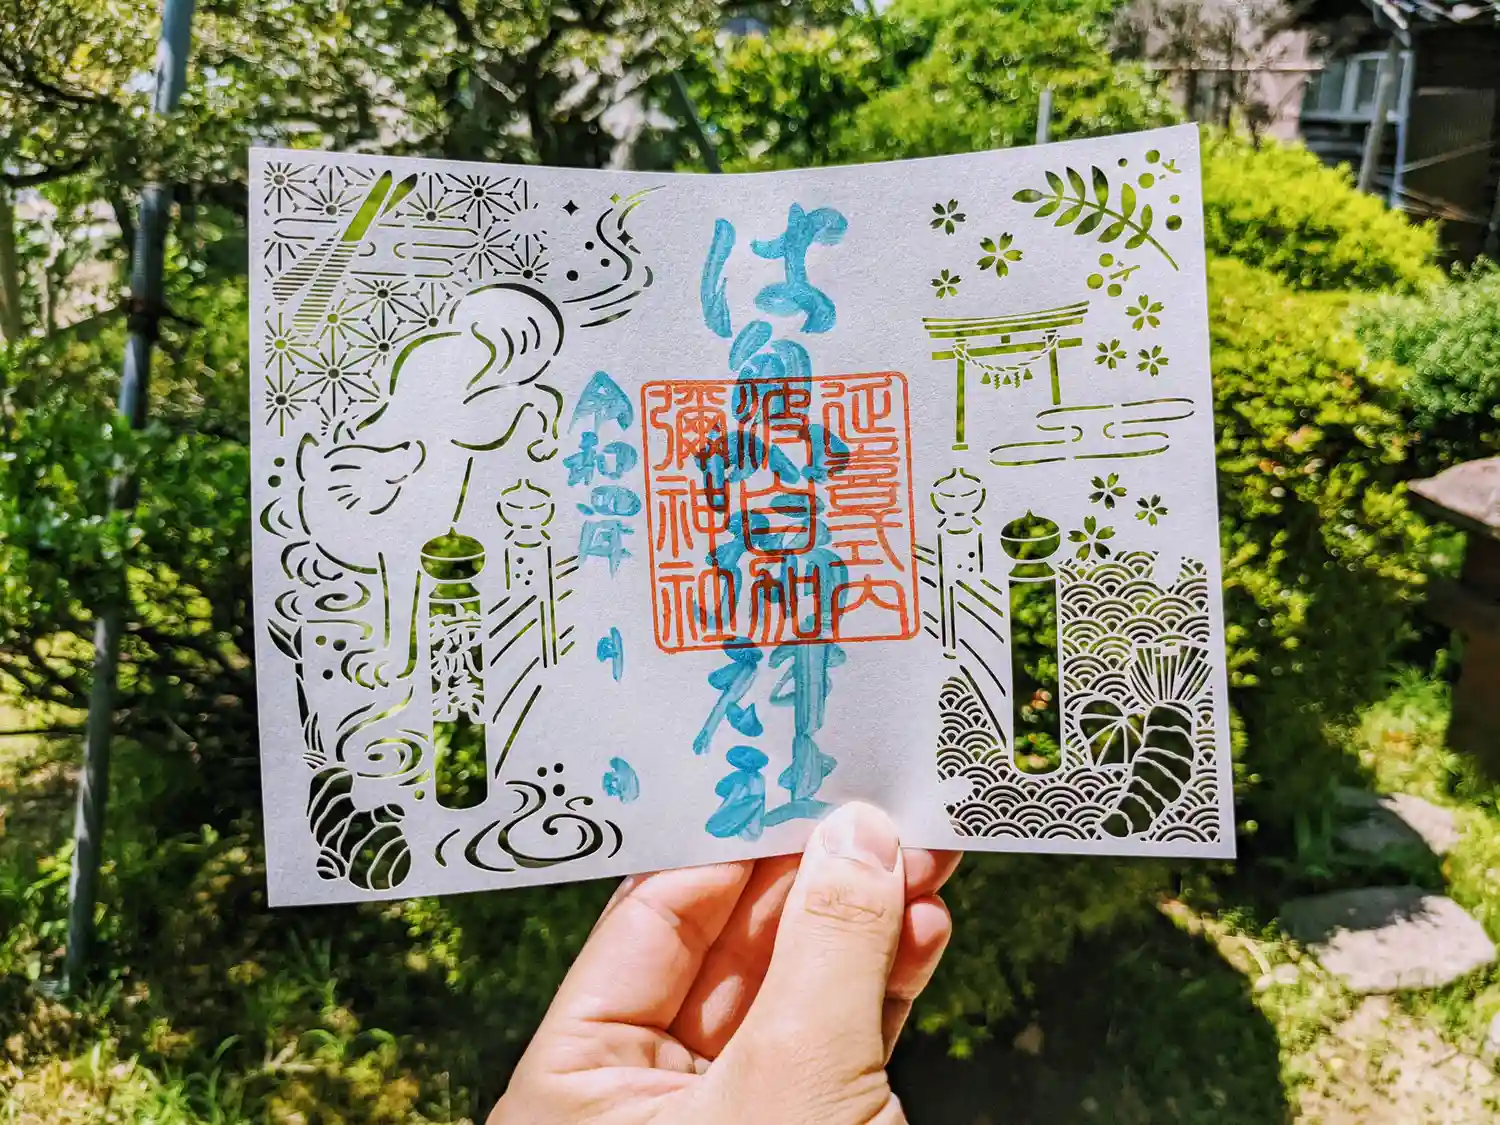 は自加彌神社
延喜式内
波自加
彌神社
令和四年 月 日